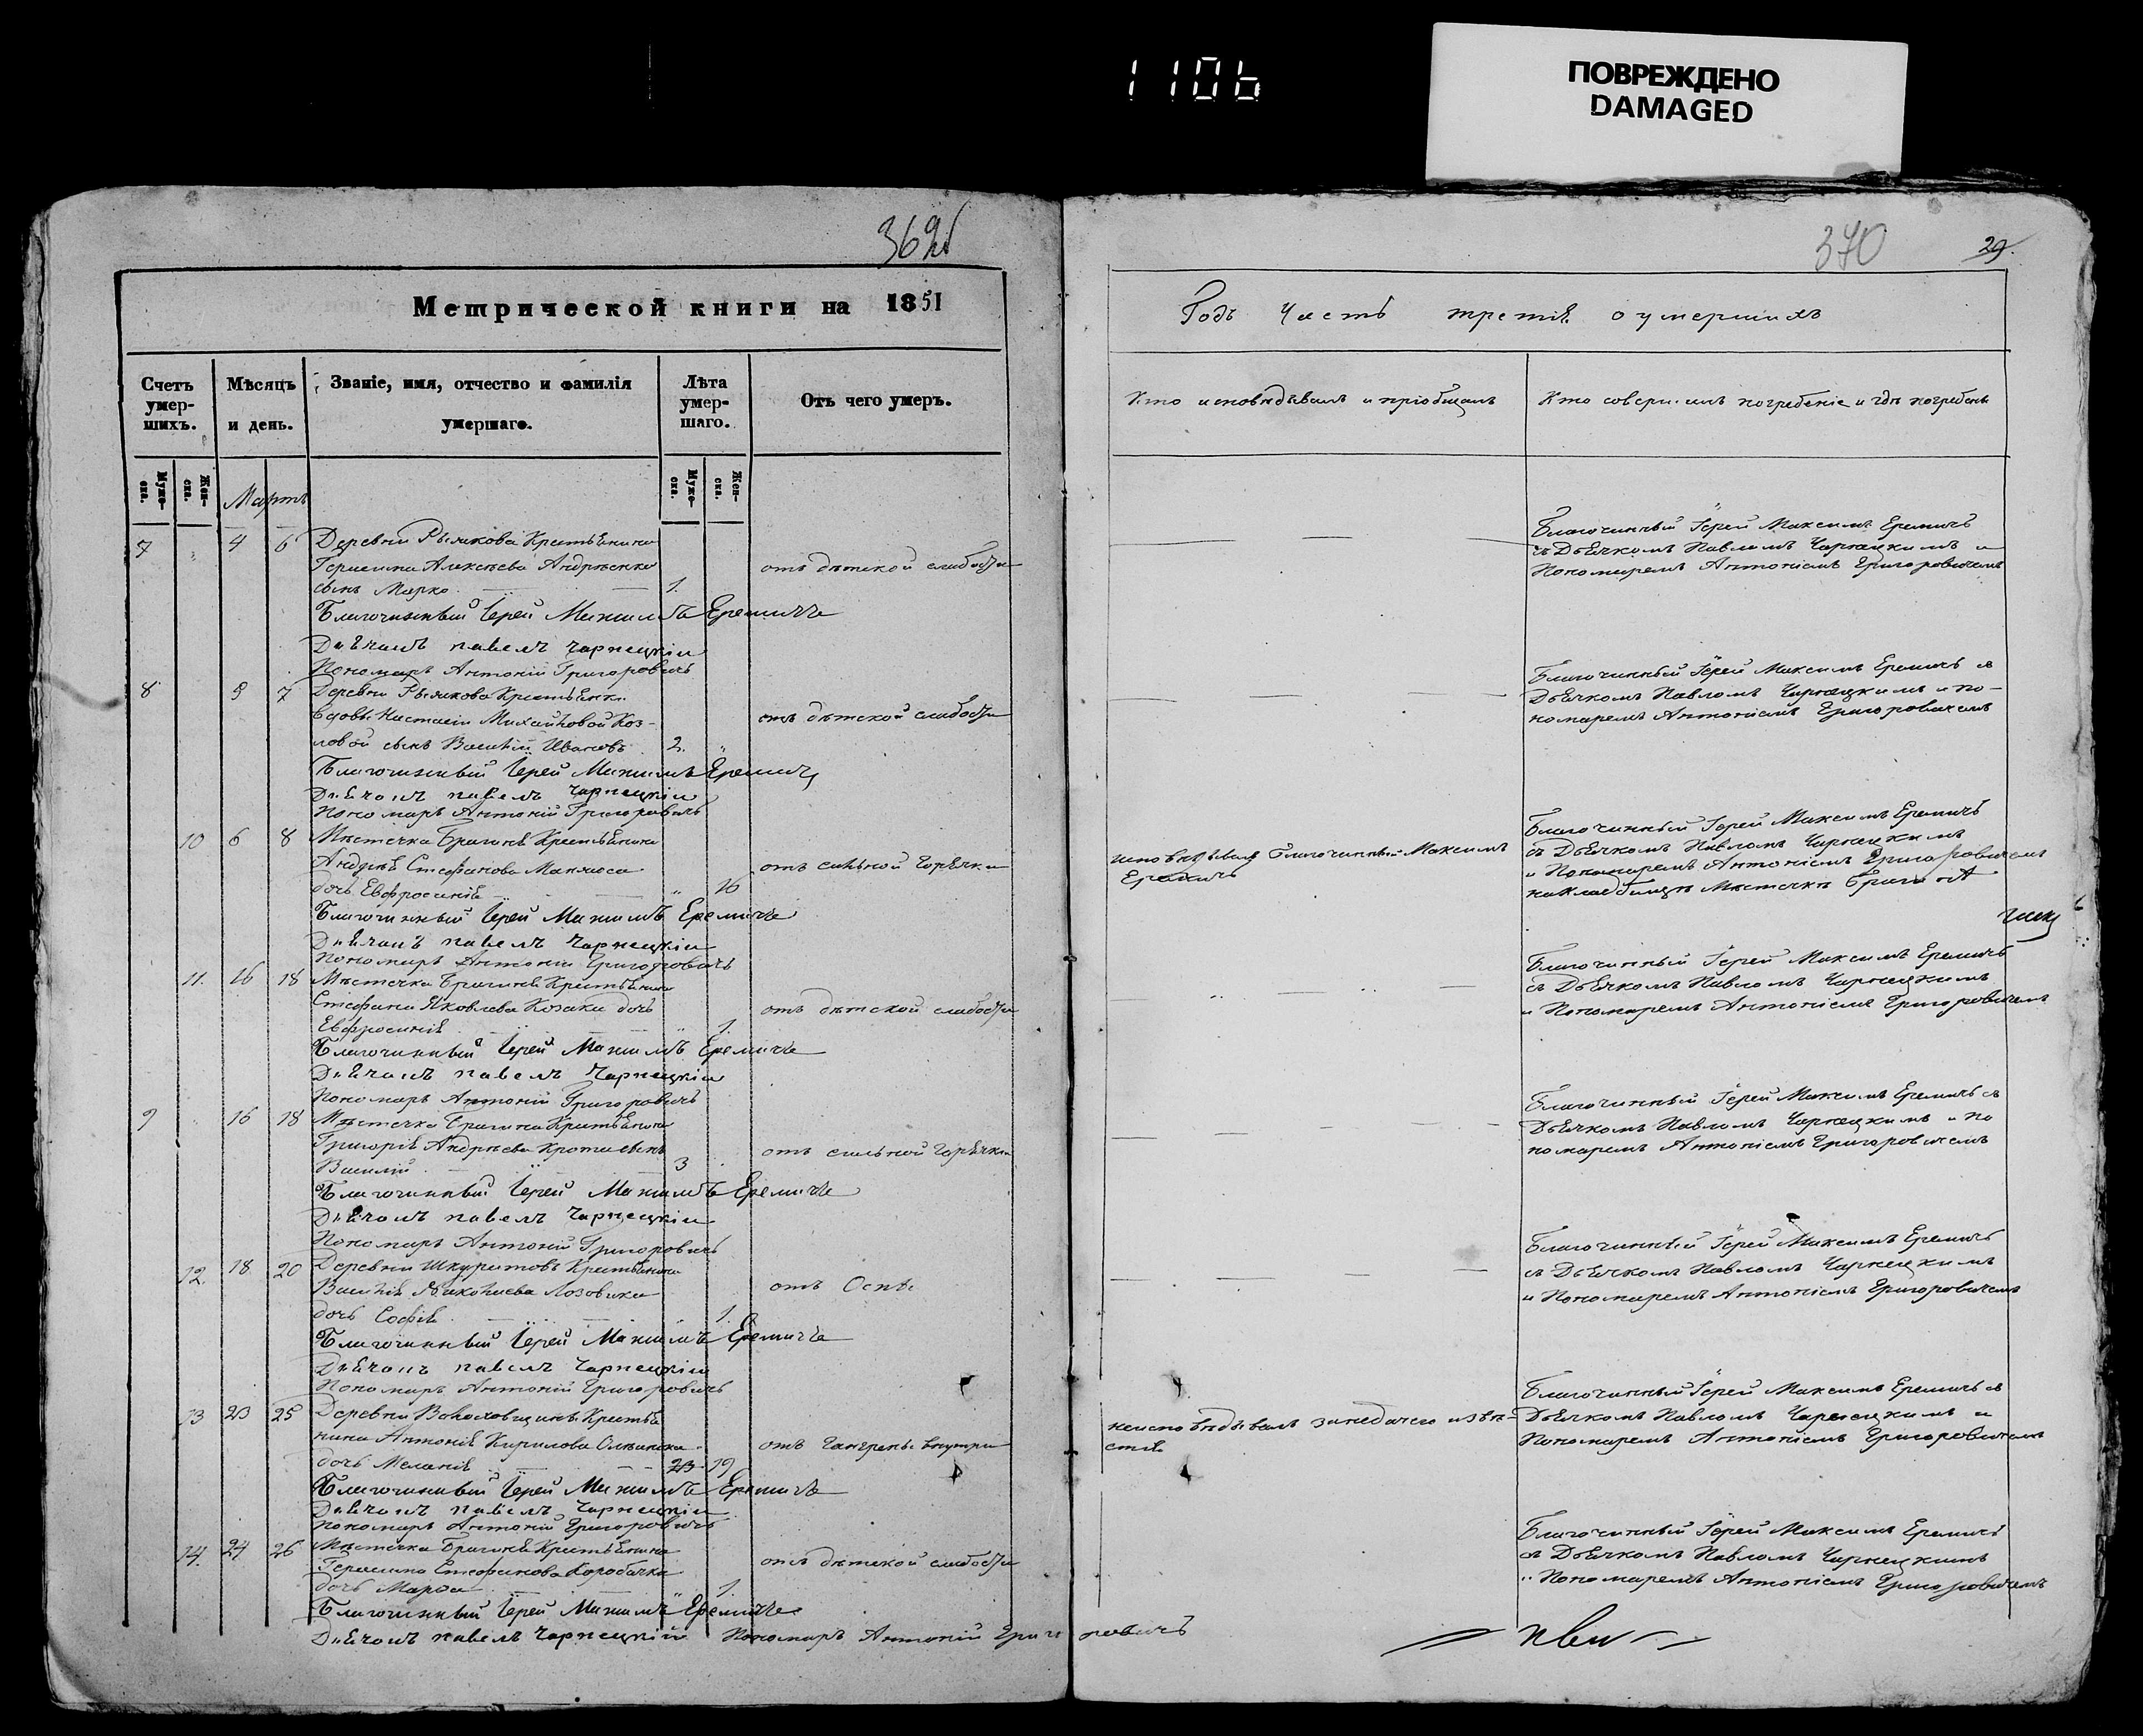 1106
ПОВРЕЖДЕНО
DAMAGED
369б
Метрической книги на 1851
Счетъ умер-шихъ.
Мѣсяцъ и день.
Званіе, имя, отчество и фамилія умершаго.
Лѣта умер-шаго.
Отъ чего умеръ.
Муже-ска.
Жен-ска.
Муже-ска.
Жен-ска.
Мартъ
7 " 4 6 Деревни Рыжкова Крестьянина
Алексѣева
отъ дѣтской слабости
сынъ Марко 1.
Благочинный Іерей Максимъ Еремичъ
Дьячокъ Павелъ Чарнецкій
Пономарь Антоній Григоровичъ
8 5 7 Деревни Рыжкова Крестьянки
вдовы Настасіи Михайловой Коз-
отъ дѣтской слабости
ловой сынъ Василій Ивановъ 2. "
Благочинный Іерей Максимъ Еремичъ
Дьячокъ Павелъ Чарнецкій
Пономарь Антоній Григоровичъ
10 6 8 Мѣстечка Брагиня Крестьянина
Андрея Стефанова
отъ сильной горячки
дочь Евфросинія " 16
Благочинный Іерей Максимъ Еремичъ
Дьячокъ Павелъ Чарнецкій
Пономарь Антоній Григоровичъ
11. 16 18 Мѣстечка Брагиня Крестьянина
Стефана Яковлева Козака дочь
отъ дѣтской слабости
Евфросинія " 1.
Благочинный Іерей Максимъ Еремичъ
Дьячокъ Павелъ Чарнецкій
Пономарь Антоній Григоровичъ
9 16 18 Мѣстечка Брагиня Крестьянина
Григорія Андреева
отъ сильной горячки
Василій 3
Благочинный Іерей Максимъ Еремичъ
Дьячокъ Павелъ Чарнецкій
Пономарь Антоній Григоровичъ
12. 18 20 Деревни Шкуратовъ Крестьянина
Василія Лозовика
отъ Оспы
дочь Софія 1.
Благочинный Іерей Максимъ Еремичъ
Дьячокъ Павелъ Чарнецкій
Пономарь Антоній Григоровичъ
13 23 25 Деревни Крестья
нина Антонія Кирилова
отъ гангрены внутри
дочь Меланія 19
Благочинный Іерей Максимъ Еремичъ
Дьячокъ Павелъ Чарнецкій
Пономарь Антоній Григоровичъ
14. 24 26 Мѣстечка Брагиня Крестьянина
Герасима Стефанова Коробачка
отъ дѣтской слабости
дочь Марѳа " 1.
Благочинный Іерей Максимъ Еремичъ
Дьячокъ Павелъ Чарнецкій Пономарь Антоній Григоровичъ
370
29.
Годъ Часть третія о умершихъ
Кто исповѣдывалъ и пріобщалъ
Кто совершилъ погребеніе и гдѣ погребенъ
Благочинный Іерей Максимъ Еремичъ
съ Дьячкомъ Павломъ Чарнецкимъ и
Пономаремъ Антоніемъ Григоровичемъ
Благочинный Іерей Максимъ Еремичъ съ
Дьячкомъ Павломъ Чарнецкимъ и по-
номаремъ Антоніемъ Григоровичемъ
исповѣдывалъ Благочинный Максимъ
Еремичъ
Благочинный Іерей Максимъ Еремичъ
съ Дьячкомъ Павломъ Чарнецкимъ
и Пономаремъ Антоніемъ Григоровичемъ
на кладбищѣ Мѣстечка
Благочинный Іерей Максимъ Еремичъ
съ Дьячкомъ Павломъ Чарнецкимъ
и Пономаремъ Антоніемъ Григоровичемъ
Благочинный Іерей Максимъ Еремичъ съ
Дьячкомъ Павломъ Чарнецкимъ и по
номаремъ Антоніемъ Григоровичемъ
Благочинный Іерей Максимъ Еремичъ
съ Дьячкомъ Павломъ Чарнецкимъ
и Пономаремъ Антоніемъ Григоровичемъ
неисповѣдывалъ за недачею извѣ-
стія
Благочинный Іерей Максимъ Еремичъ съ
Дьячкомъ Павломъ Чарнецкимъ и
Пономаремъ Антоніемъ Григоровичемъ
Благочинный Іерей Максимъ Еремичъ
съ Дьячкомъ Павломъ Чарнецкимъ
и Пономаремъ Антоніемъ Григоровичемъ